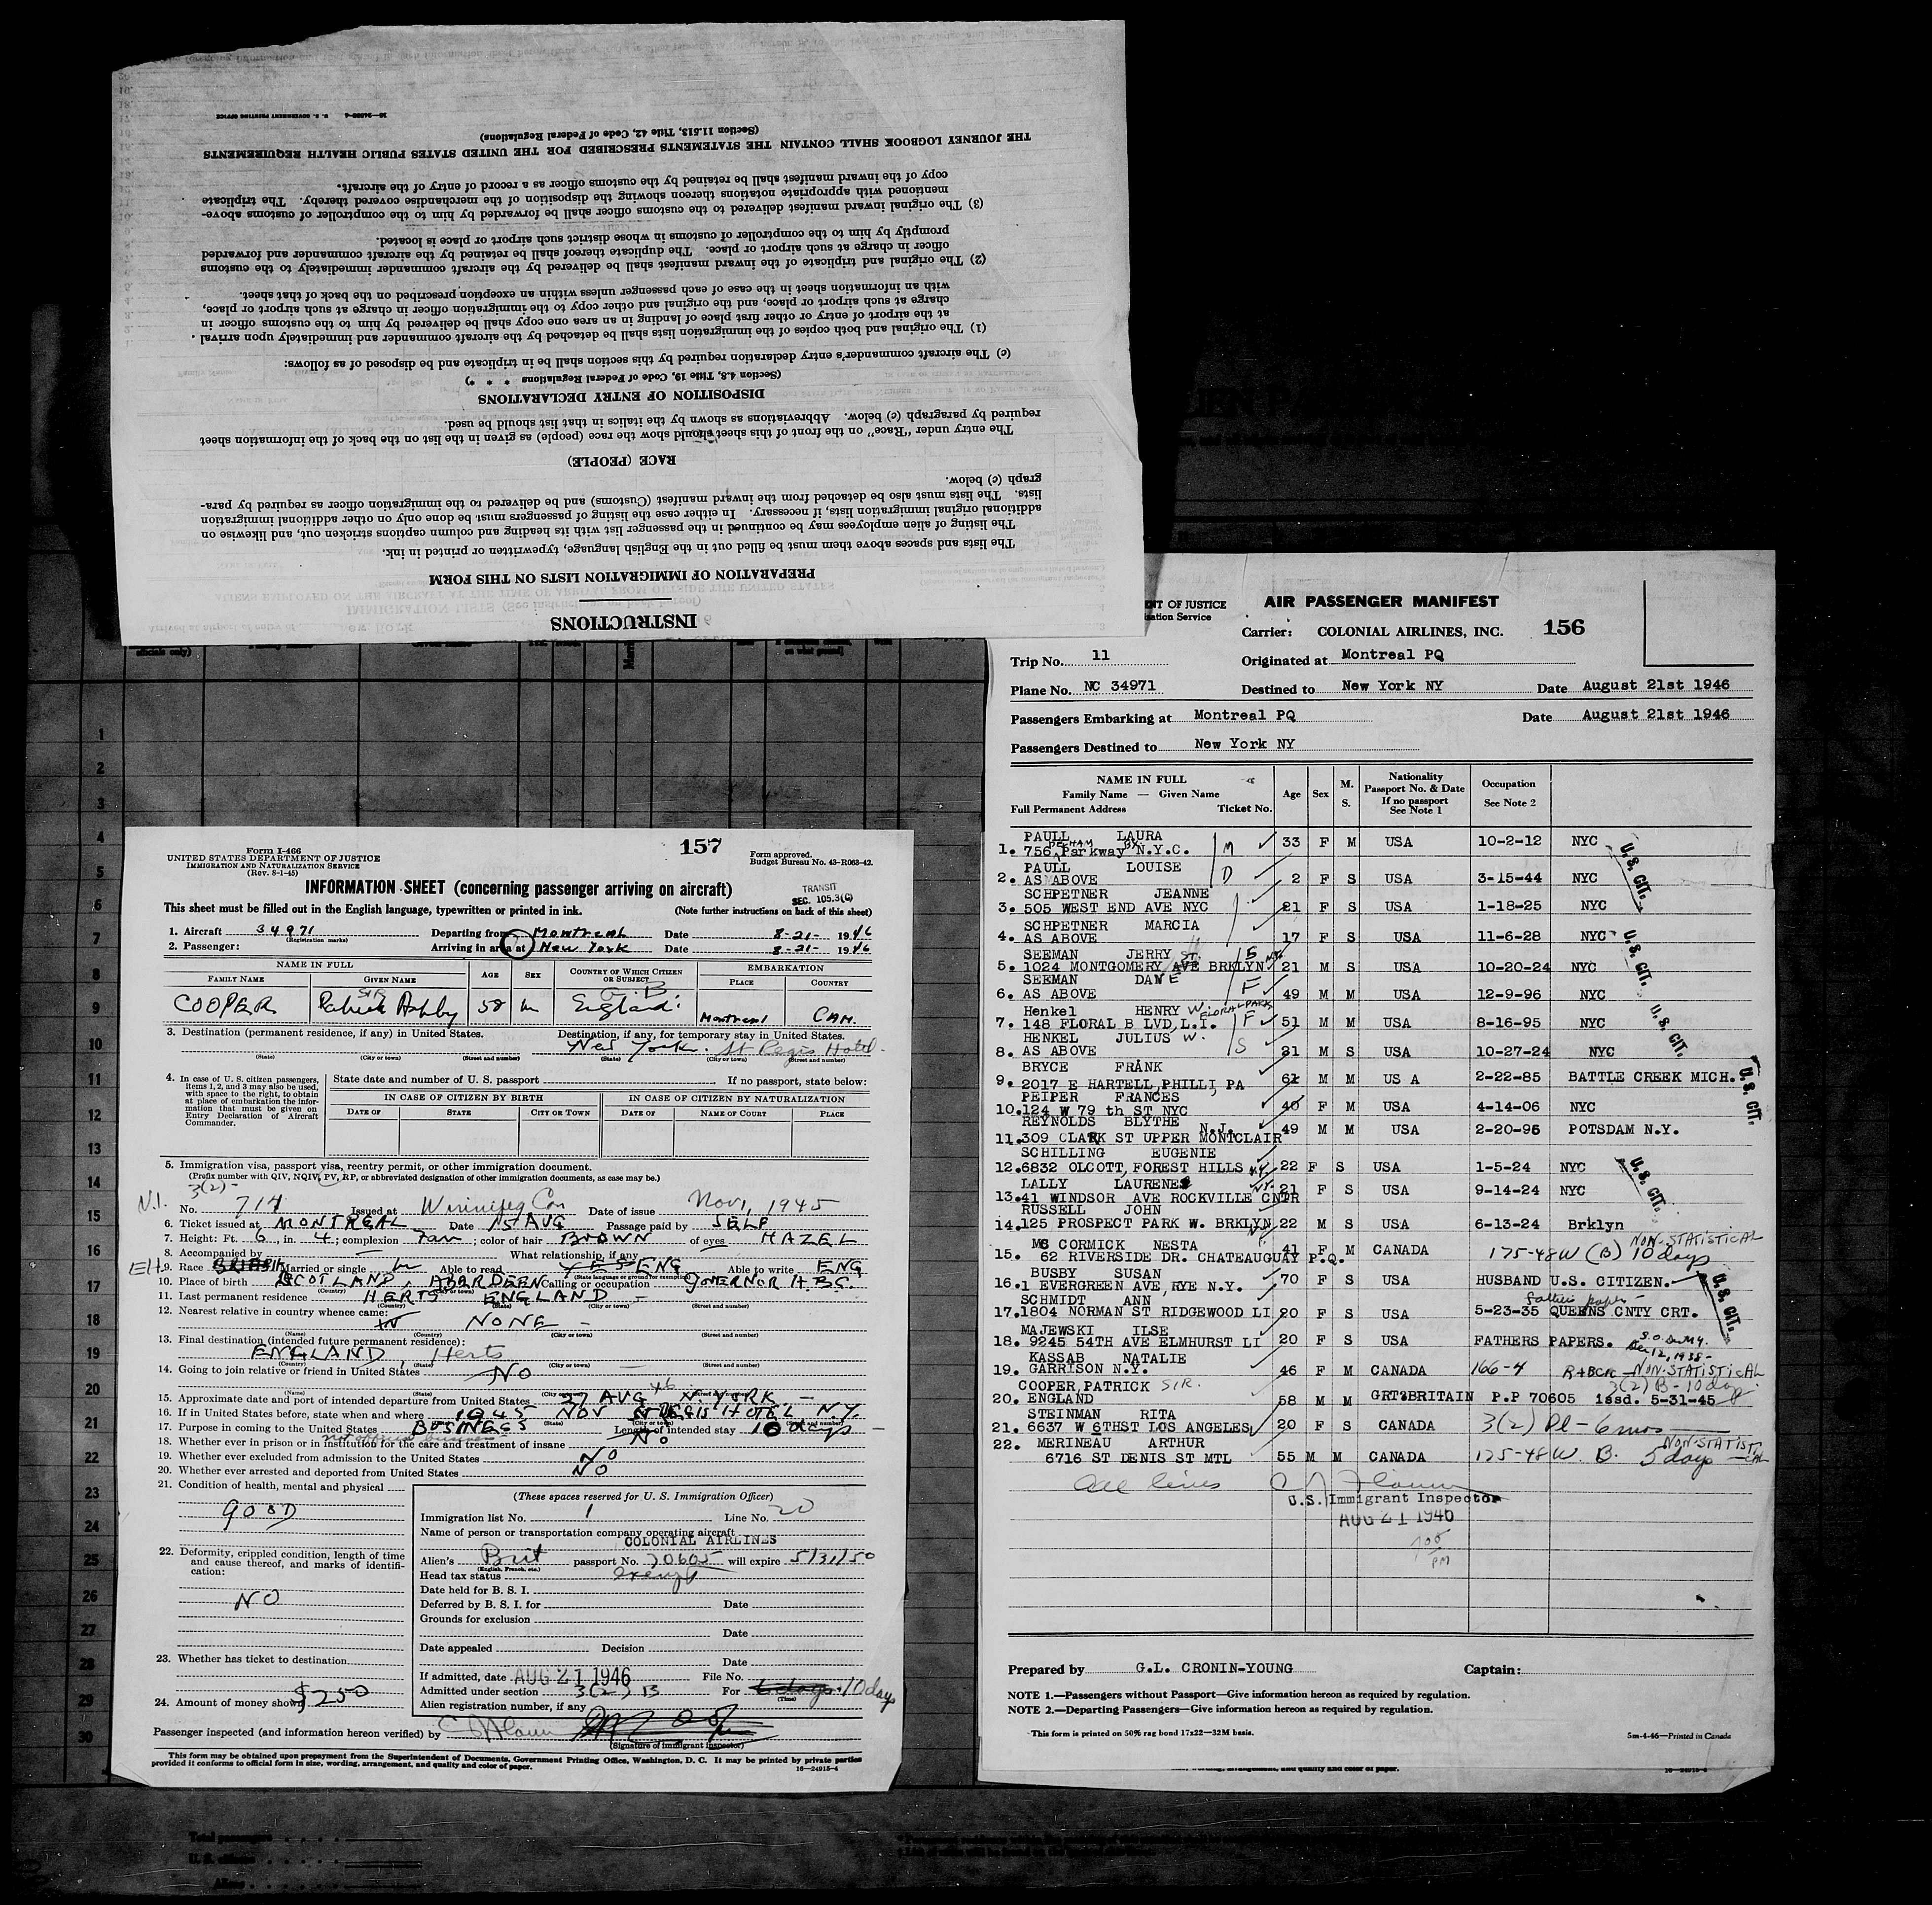 INSTRUCTIONS
PREPARATION OF IMMIGRATION LISTS ON THIS FORM
The lists and spaces above them must be filled out in the English language, typewritten or printed in ink.
The listing of alien employees may be continued in the passenger list with its heading and column captions stricken out, and likewise on
additional original immigration lists, if necessary. In either case the listing of passengers must be done only on other additional immigration
lists. The lists must also be detached from the inward manifest (Customs) and be delivered to the immigration officer as required by para-
graph (c) below.
RACE (PEOPLE)
The entry under "Race" on the front of this sheet should show the race (people) as given in the list on the back of the information sheet
required by paragraph (c) below. Abbreviations as shown by the italics in that list should be used.
DISPOSITION OF ENTRY DECLARATIONS
(Section 4.8, Title 19, Code of Federal Regulations * * *)
(c) The aircraft commander's entry declaration required by this section shall be in triplicate and be disposed of as follows:
(1) The original and both copies of the immigration lists shall be detached by the aircraft commander and immediately upon arrival
at the airport of entry or other first place of landing in an area one copy shall be delivered by him to the customs officer in
charge at such airport or place, and the original and other copy to the immigration officer in charge at such airport or place,
with an information sheet in the case of each passenger unless within an exception prescribed on the back of that sheet.
(2) The original and triplicate of the inward manifest shall be delivered by the aircraft commander immediately to the customs
officer in charge at such airport or place. The duplicate thereof shall be retained by the aircraft commander and forwarded
promptly by him to the comptroller of customs in whose district such airport or place is located.
(3) The original inward manifest delivered to the customs officer shall be forwarded by him to the comptroller of customs above-
mentioned with appropriate notations thereon showing the disposition of the merchandise covered thereby. The triplicate
copy of the inward manifest shall be retained by the customs officer as a record of entry of the aircraft.
THE JOURNEY LOGBOOK SHALL CONTAIN THE STATEMENTS PRESCRIBED FOR THE UNITED STATES PUBLIC HEALTH REQUIREMENTS
(Section 11.513, Title 42, Code of Federal Regulations)
U. S. GOVERNMENT PRINTING OFFICE
1
2
3
4
5
6
7
8
9
10
11
12
13
14
15
16
17
18
19
20
21
22
23
24
25
26
27
28
29
30
Form I-466
UNITED STATES DEPARTMENT OF JUSTICE
IMMIGRATION AND NATURALIZATION SERVICE
(Rev. 8-1-45)
157
Form approved.
Budget Bureau No. 43-R063-42.
INFORMATION SHEET (concerning passenger arriving on aircraft)
TRANSIT
SEC. 105.3(C)
This sheet must be filled out in the English language, typewritten or printed in ink. (Note further instructions on back of this sheet)
1. Aircraft 34971 (Registration marks) Departing from Montreal Date 8-21- 1946
2. Passenger: Arriving in area at New York Date 8-21- 1946
NAME IN FULL AGE SEX COUNTRY OF WHICH CITIZEN OR SUBJECT EMBARKATION
FAMILY NAME GIVEN NAME PLACE COUNTRY
COOPER Patrick Ashby SIR 58 m England B Montreal CAN.
3. Destination (permanent residence, if any) in United States. Destination, if any, for temporary stay in United States.
New York. St Regis Hotel.
(State) (City or town) (Street and number) (State) (City or town) (Street and number)
4. In case of U. S. citizen passengers, items 1, 2, and 3 may also be used, with space to the right, to obtain at place of embarkation the information that must be given on Entry Declaration of Aircraft Commander.
State date and number of U. S. passport If no passport, state below:
IN CASE OF CITIZEN BY BIRTH IN CASE OF CITIZEN BY NATURALIZATION
DATE OF STATE CITY OR TOWN DATE OF NAME OF COURT PLACE
5. Immigration visa, passport visa, reentry permit, or other immigration document.
(Prefix number with QIV, NQIV, PV, RP, or abbreviated designation of other immigration documents, as case may be.)
3(2)-
N.I. No. 714 Issued at Winnipeg Can Date of issue Nov 1, 1945
6. Ticket issued at MONTREAL Date 15 AUG Passage paid by SELF
7. Height: Ft. 6, in. 4; complexion Tan; color of hair BROWN of eyes HAZEL
8. Accompanied by — What relationship, if any
9. Race Married or single m Able to read YES ENG Able to write ENG
(State language or ground for exemption)
10. Place of birth SCOTLAND, ABERDEEN Calling or occupation GOVERNOR H.B.C.
11. Last permanent residence HERTS ENGLAND —
12. Nearest relative in country whence came:
NONE —
(Name) (Country) (City or town) (Street and number)
13. Final destination (intended future permanent residence):
ENGLAND, Herts
(Country) (State) (City or town) (Street and number)
14. Going to join relative or friend in United States NO —
(Name) (State) (City or town) (Street and number)
15. Approximate date and port of intended departure from United States 27 AUG 46 N. YORK —
16. If in United States before, state when and where 1945 NOV ST REGIS HOTEL N.Y.
17. Purpose in coming to the United States BUSINESS Length of intended stay 10 days
18. Whether ever in prison or in institution for the care and treatment of insane NO
19. Whether ever excluded from admission to the United States NO
20. Whether ever arrested and deported from United States NO
21. Condition of health, mental and physical
GOOD
22. Deformity, crippled condition, length of time and cause thereof, and marks of identification:
NO
23. Whether has ticket to destination
24. Amount of money shown $250
(These spaces reserved for U. S. Immigration Officer)
Immigration list No. 1 Line No. 20
Name of person or transportation company operating aircraft
COLONIAL AIRLINES
Alien's Brit passport No. 70605 will expire 5/31/50
(English, French, etc.)
Head tax status exempt
Date held for B. S. I.
Deferred by B. S. I. for Date
Grounds for exclusion
Date
Date appealed Decision
Date
If admitted, date AUG 21 1946 File No.
Admitted under section 3(2) B For 10 days
(Time)
Alien registration number, if any
Passenger inspected (and information hereon verified) by
(Signature of immigrant inspector)
This form may be obtained upon prepayment from the Superintendent of Documents, Government Printing Office, Washington, D. C. It may be printed by private parties
provided it conforms to official form in size, wording, arrangement, and quality and color of paper. 16—24915-4
NT OF JUSTICE
AIR PASSENGER MANIFEST
Carrier: COLONIAL AIRLINES, INC. 156
Trip No. 11 Originated at Montreal PQ
Plane No. NC 34971 Destined to New York NY Date August 21st 1946
Passengers Embarking at Montreal PQ Date August 21st 1946
Passengers Destined to New York NY
NAME IN FULL
Family Name — Given Name
Full Permanent Address Ticket No. Age Sex M. S. Nationality Passport No. & Date If no passport See Note 1 Occupation See Note 2
PAULL LAURA
1. 756 PELHAM Parkway BX N.Y.C. M 33 F M USA 10-2-12 NYC
PAULL LOUISE
2. AS ABOVE D 2 F S USA 3-15-44 NYC
SCHPETNER JEANNE
3. 505 WEST END AVE NYC 21 F S USA 1-18-25 NYC
SCHPETNER MARCIA
4. AS ABOVE 17 F S USA 11-6-28 NYC
SEEMAN JERRY
5. 1024 MONTGOMERY AVE ST. BRKLYN S 21 M S USA 10-20-24 NYC
SEEMAN DAVE
6. AS ABOVE F 49 M M USA 12-9-96 NYC
Henkel HENRY W.
7. 148 FLORAL B LVD, L.I. FLORAL PARK F 51 M M USA 8-16-95 NYC
HENKEL JULIUS W.
8. AS ABOVE S 21 M S USA 10-27-24 NYC
BRYCE FRANK
9. 2017 E HARTELL, PHILLI, PA 61 M M US A 2-22-85 BATTLE CREEK MICH.
PEIPER FRANCES
10. 124 W 79 th ST NYC 40 F M USA 4-14-06 NYC
REYNOLDS BLYTHE N.J.
11. 309 CLARK ST UPPER MONTCLAIR 49 M M USA 2-20-96 POTSDAM N.Y.
SCHILLING EUGENIE
12. 6832 OLCOTT, FOREST HILLS N.Y. 22 F S USA 1-5-24 NYC
LALLY LAURENE
13. 41 WINDSOR AVE ROCKVILLE CNTR N.Y. 21 F S USA 9-14-24 NYC
RUSSELL JOHN
14. 125 PROSPECT PARK W. BRKLYN 22 M S USA 6-13-24 Brklyn
MC CORMICK NESTA
15. 62 RIVERSIDE DR. CHATEAUGUAY P.Q. 41 F M CANADA 175-48W (B) 10 days NON-STATISTICAL
BUSBY SUSAN
16. 1 EVERGREEN AVE, RYE N.Y. 70 F S USA HUSBAND U.S. CITIZEN.
SCHMIDT ANN
17. 1804 NORMAN ST RIDGEWOOD LI 20 F S USA 5-23-35 QUEENS CNTY CRT. fathers papers -
MAJEWSKI ILSE
18. 9245 54TH AVE ELMHURST LI 20 F S USA FATHERS PAPERS. Dec 12, 1938-
KASSAB NATALIE
19. GARRISON N.Y. 46 F M CANADA 166-4 NON-STATISTICAL
COOPER, PATRICK SIR.
20. ENGLAND 58 M M GRT BRITAIN P.P 70605 issd. 5-31-45 3(2) B-10 day
STEINMAN RITA
21. 6637 W 6THST LOS ANGELES 20 F S CANADA 3(2) Pl - 6 mos
22. MERINEAU ARTHUR
6716 ST DENIS ST MTL 55 M M CANADA 175-48W. B. 5 days NON-STATISTICAL
U.S. CIT.
U.S. CIT.
U.S. CIT.
U.S. CIT.
U.S. CIT.
U.S. CIT.
All lines
U.S. Immigrant Inspector
AUG 21 1946
PM
Prepared by G.L. CRONIN-YOUNG Captain:
NOTE 1.—Passengers without Passport—Give information hereon as required by regulation.
NOTE 2.—Departing Passengers—Give information hereon as required by regulation.
This form is printed on 50% rag bond 17x22—32M basis. 5m-4-46—Printed in Canada
Total passengers
U. S. citizens
Aliens